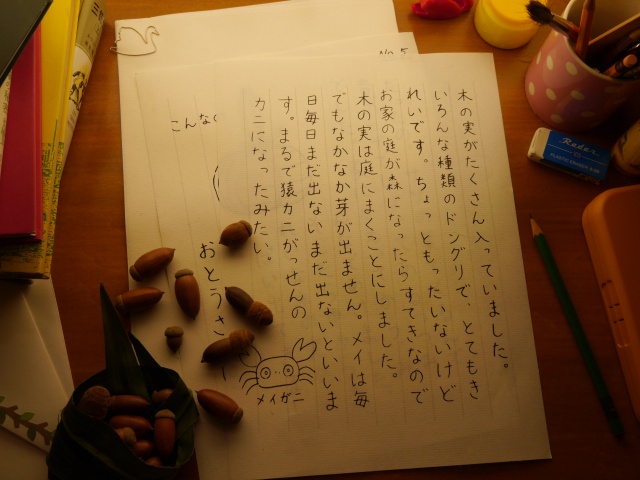 No 5
木の実がたくさん入っていました。
いろんな種類のドングリで、とてもき
れいです。ちょっともったいないけど
お家の庭が森になったらすてきなので
木の実は庭にまくことにしました。
でもなかなか芽が出ません。メイは毎
日毎日まだ出ないまだ出ないといいま
す。まるで猿カニがっせんの
カニになったみたい。
おとうさ
こんなく
メイガニ